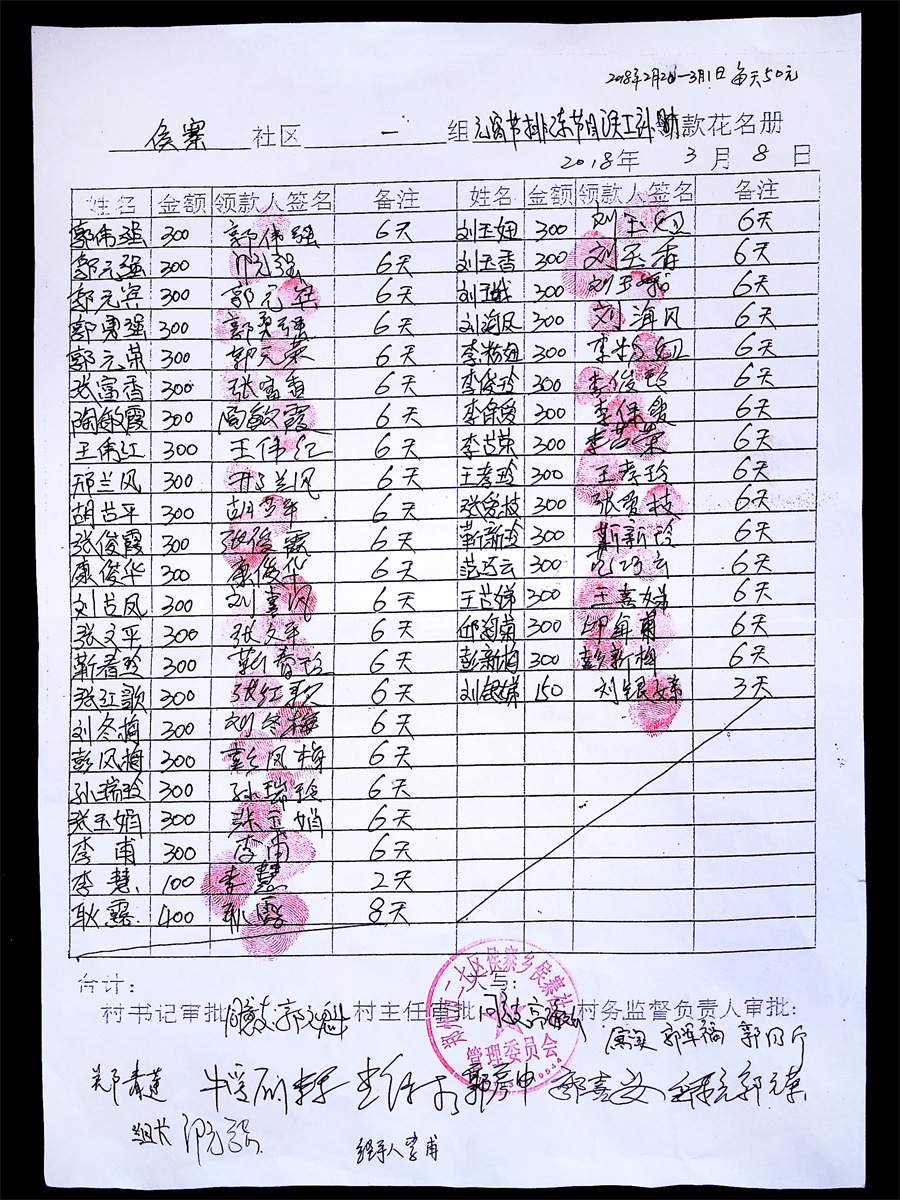 2018年2月2日-3月1日 每天50元
侯寨 社区 一 组 元宵节排练节目误工补助款花名册
2018年 3月 8日
姓名 金额 领款人签名 备注 姓名 金额 领款人签名 备注
郭伟强 300 郭伟强 6天 刘玉妞 300 刘玉妞 6天
郭元强 300 6天 刘玉香 300 刘玉香 6天
郭元宾 300 郭元宾 6天 300 6天
郭勇强 300 郭勇强 6天 刘海凤 300 刘海凤 6天
郭元荣 300 郭元荣 6天 李粉妞 300 李粉妞 6天
张富香 300 张富香 6天 李俊玲 300 李俊玲 6天
陶敏霞 300 陶敏霞 6天 李保爱 300 李保爱 6天
王伟红 300 王伟红 6天 李喜荣 300 李喜荣 6天
邢兰凤 300 邢兰凤 6天 王孝玲 300 王孝玲 6天
胡喜平 300 胡喜平 6天 张爱枝 300 张爱枝 6天
张俊霞 300 张俊霞 6天 靳新玲 300 靳新玲 6天
康俊华 300 康俊华 6天 范巧云 300 范巧云 6天
刘喜凤 300 刘喜凤 6天 王喜娣 300 王喜娣 6天
张文平 300 张文平 6天 邱海甫 300 6天
靳春玲 300 靳春玲 6天 彭新梅 300 彭新梅 6天
张红歌 300 张红歌 6天 刘银娣 150 刘银娣 3天
刘冬梅 300 刘冬梅 6天
彭凤梅 300 彭凤梅 6天
孙瑞玲 300 孙瑞玲 6天
张玉娟 300 张玉娟 6天
李甫 300 李甫 6天
李慧 100 李慧 2天
耿露 400 耿露 8天
合计： 大写：
村书记审批 同意 郭元魁 村主任审批： 同意 村务监督负责人审批：
二七区侯寨乡侯寨社
管理委员会
郭军福
郑春莲 郭彦中 郭元荣
组长
经手人 李甫